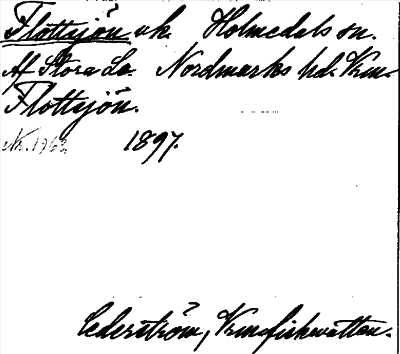 Flottsjön vk. Holmedals sn.
Af Stora Le. Nordmarks hd. Vrm.
Flottsjön.
Nr. 1963 1897.
Cederström, Vrm fiskvatten.